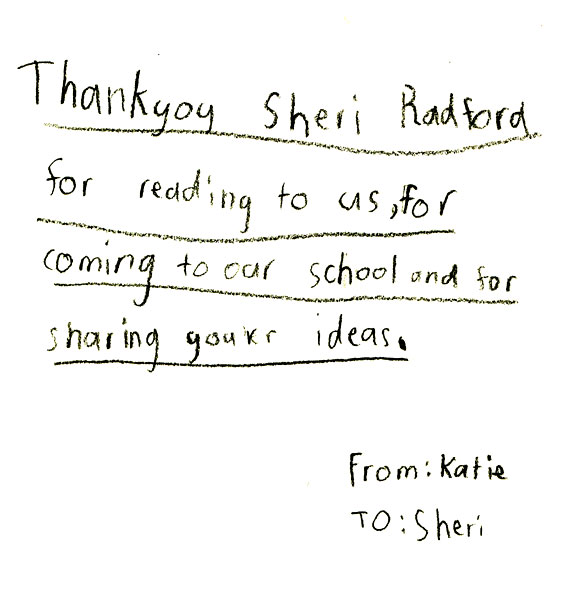 Thankyoy Sheri Radford
for reading to us, for
coming to our school and for
sharing youkr ideas.
From: Katie
TO: Sheri